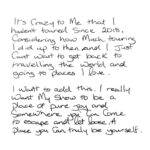 It's Crazy to Me that I
havent toured Since 2015,
Considering how Much touring
I did up to then and I Just
Cant wait to get back to
travelling the world and
going to places I love.
I want to add this I really
want My Show to be a
place of pure joy and
Somewhere you can Come
to escape and let loose. A
place you Can truly be yourself.